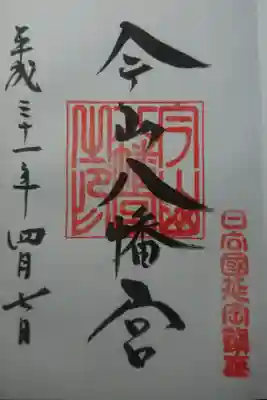 今山八幡宮
平成三十一年四月七日
今山八幡宮之印
日向國延岡鎮座